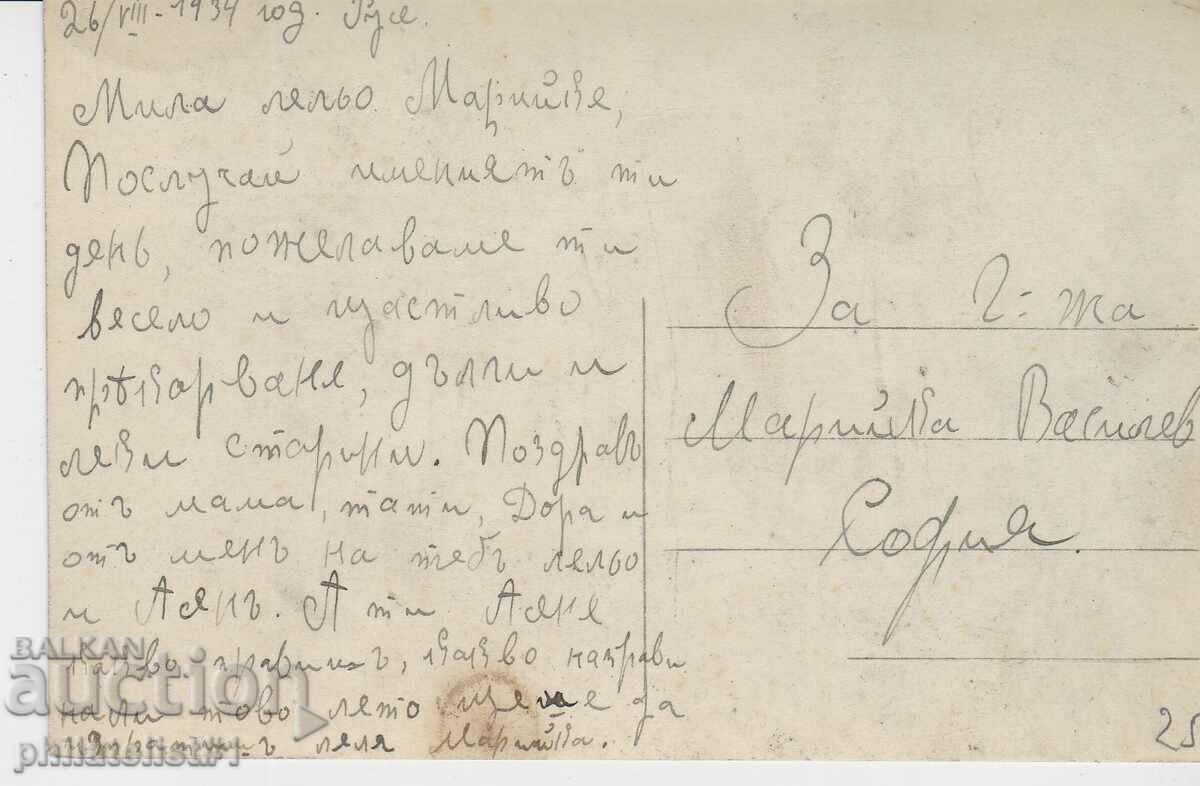 26/VIII-1934 год. Русе.
Мила лельо Марийке,
Послучай имениятъ ти
день, пожелаваме ти
весело и щастливо
прѣкарване, дълги и
леки старини. Поздравъ
отъ мама, тати, Дора и
отъ менъ на тебъ лельо
и Асенъ. А ти Асене
какво правишъ, какво направи
нали това лето щеше да
леля Марийка.
За Г-жа
Марийка Василев
София.
25
BALKAN
auction
philatelist#1